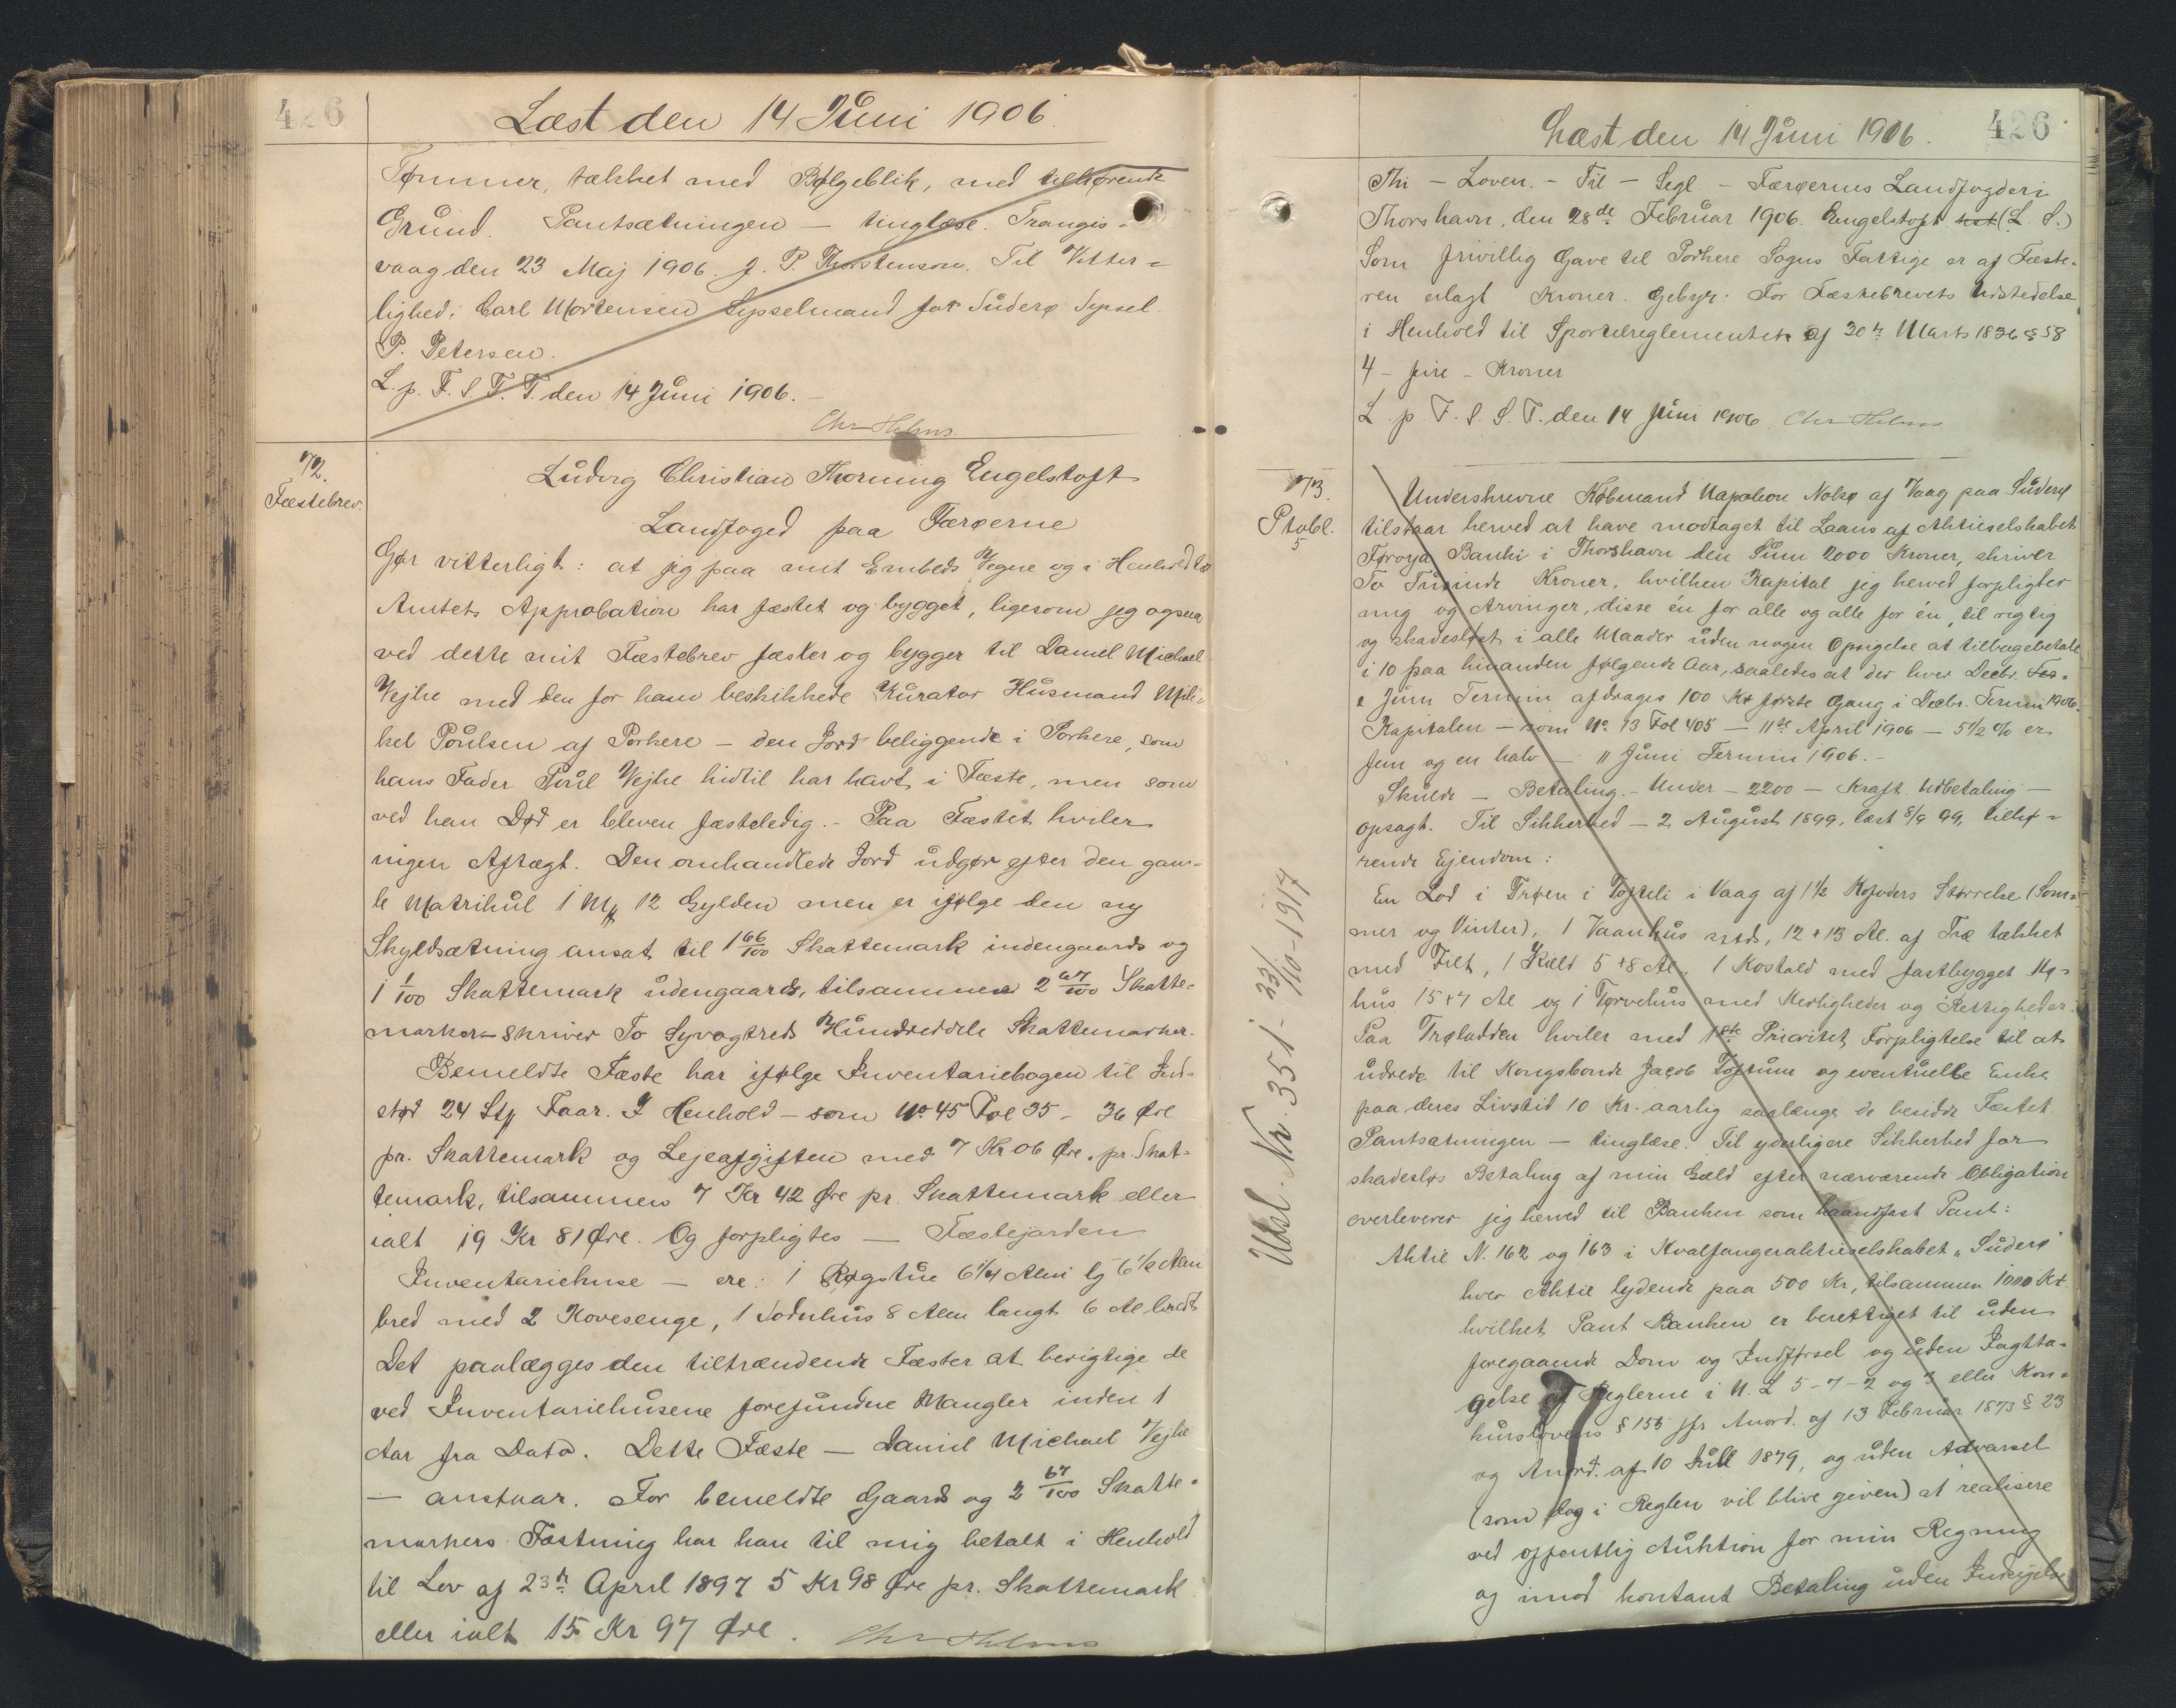 426
Læst den 14 Juni 1906
Tømmer, tækket med Bølgeblik, med tilhørende
Grund. Pantsætningen — tinglæse. Trangis-
vaag den 23 Maj 1906. J. P. Thorstenson. Til Vitter-
lighed: Carl Mortensen Sysselmand for Suderø Syssel.
P. Petersen.
L. p. F. S. T. T. den 14 Juni 1906. —
Chr Helms.
72.
Fæstebrev.
Ludvig Christian Thorning Engelstoft
Landfoged paa Færøerne
Gør vitterligt: at jeg paa mit Embeds Vegne og i Henhold til
Amtets Approbation har fæstet og bygget, ligesom jeg ogsaa
ved dette mit Fæstebrev fæster og bygger til Daniel Michael
Vejhe med den for ham beskikkede Kurator Husmand Mik-
kel Poulsen af Porkere — den Jord beliggende i Porkere, som
hans Fader Poul Vejhe hidtil har havt i Fæste, men som
ved han Død er bleven fæsteledig. — Paa Fæstet hviler
ingen Aftægt. Den omhandlede Jord udgør efter den gam-
le Matrikul 1 Mk 12 Gylden men er ifølge den ny
Skyldsætning ansat til 1 66/100 Skattemark indengaards og
1 1/100 Skattemark udengaards, tilsammen 2 67/100 Skatte-
marker — skriver To Syvogtreds Hundreddele Skattemarker.
Bemeldte Fæste har ifølge Inventariebogen til Ind-
stød 24 Stk Faar. I Henhold — som No 45 Fol 35 — 36 Øre
pr. Skattemark og Lejeafgiften med 7 Kr 06 Øre pr. Skat-
temark, tilsammen 7 Kr 42 Øre pr. Skattemark eller
ialt 19 Kr 81 Øre. Og forpligtes — Fæstejorden
Inventariehuse — ere: 1 Røgstue 6 1/4 Alen lg 6 1/2 Alen
bred med 2 Kovesenge, 1 Sodnhus 8 Alen langt 6 Al bredt
Det paalægges den tiltrædende Fæster at berigtige de
ved Inventariehusene forefundne Mangler inden 1
Aar fra Dato. Dette Fæste — Daniel Michael Vejhe
— anstaar. For bemeldte Gaard og 2 67/100 Skatte-
markers Fæstning har han til mig betalt i Henhold
til Lov af 23de April 1897 5 Kr 98 Øre pr. Skattemark
eller ialt 15 Kr 97 Øre. Chr Helms
Læst den 14 Juni 1906. 426
Thi — Loven. — Til — Segl — Færøernes Landfogderi
Thorshavn, den 28de Februar 1906. Engelstoft (L. S.)
Som frivillig Gave til Porkere Sogns Fattige er af Fæste-
ren erlagt Kroner. Gebyr: For Fæstebrevets Udstedelse
i Henhold til Sportelreglementet af 30te Marts 1836 § 58
4 — fire — Kroner
L. p F. S. S. T. den 14 Juni 1906. Chr Helms
73.
Ptobl.
5
Underskrevne Købmand Napoleon Nolsø af Vaag paa Suderø
tilstaar herved at have modtaget til Laans af Aktieselskabet
Føroya Banki i Thorshavn den Sum 2000 Kroner, skriver
To Tusinde Kroner, hvilken Kapital jeg herved forpligter
mig og Arvinger, disse én for alle og alle for én, til rigtig
og skadesløst i alle Maader uden nogen Opsigelse at tilbagebetale
i 10 paa hinanden følgende Aar, saaledes at der hver Decbr.
e Juni Termin afdrages 100 Kr første Gang i Decbr. Termin 1906.
Kapitalen — som No. 13 Fol 405 — 11te April 1906 — 5 1/2 % er
fem og en halv — 11 Juni Termin 1906. —
Skulde — Betaling. — Under — 2200 — Kraft. Udbetaling —
opsagt. Til Sikkerhed — 2 August 1899, læst 8/9 99, tilhø-
rende Ejendom:
En Lod i Trøen i Tofteli i Vaag af 1 1/2 Kofoders Størrelse (Som-
mer og Vinter), 1 Vaanhus 12 + 13 Al. af Træ tækket
med Filt, 1 Kæld 5 + 8 Al, 1 Kostald med fastbygget Hø-
hus 15 + 7 Al og 1 Tørvehus med Herligheder og Rettigheder.
Paa Trøladden hviler med 1ste Prioritet Forpligtelse til at
udrede til Kongsbonde Jacob Toftum og eventuelle Enke
paa deres Livstid 10 Kr. aarlig saalænge de besidde Fæstet.
Pantsætningen — tinglæse. Til yderligere Sikkerhed for
skadesløs Betaling af min Gæld efter nærværende Obligation
overleverer jeg herved til Banken som haandfast Pant:
Aktie N. 162 og 163 i Kvalfangeraktieselskabet "Suderø"
hver Aktie lydende paa 500 Kr, tilsammen 1000 Kr.
hvilket Pant Banken er berettiget til uden
foregaaende Dom og Indførsel og uden Iagtta-
gelse af Reglerne i N. L 5-7-2 og 3 eller Kon-
kurslovens § 155 jfr Anord. af 13 Februar 1873 § 23
og Anord. af 10 Juli 1879, og uden Advarsel
(som dog i Reglen vil blive given) at realisere
ved offentlig Auktion for min Regning
og imod kontant Betaling uden Indsigelse
Udsl. Nr. 351 - 23/10-1917